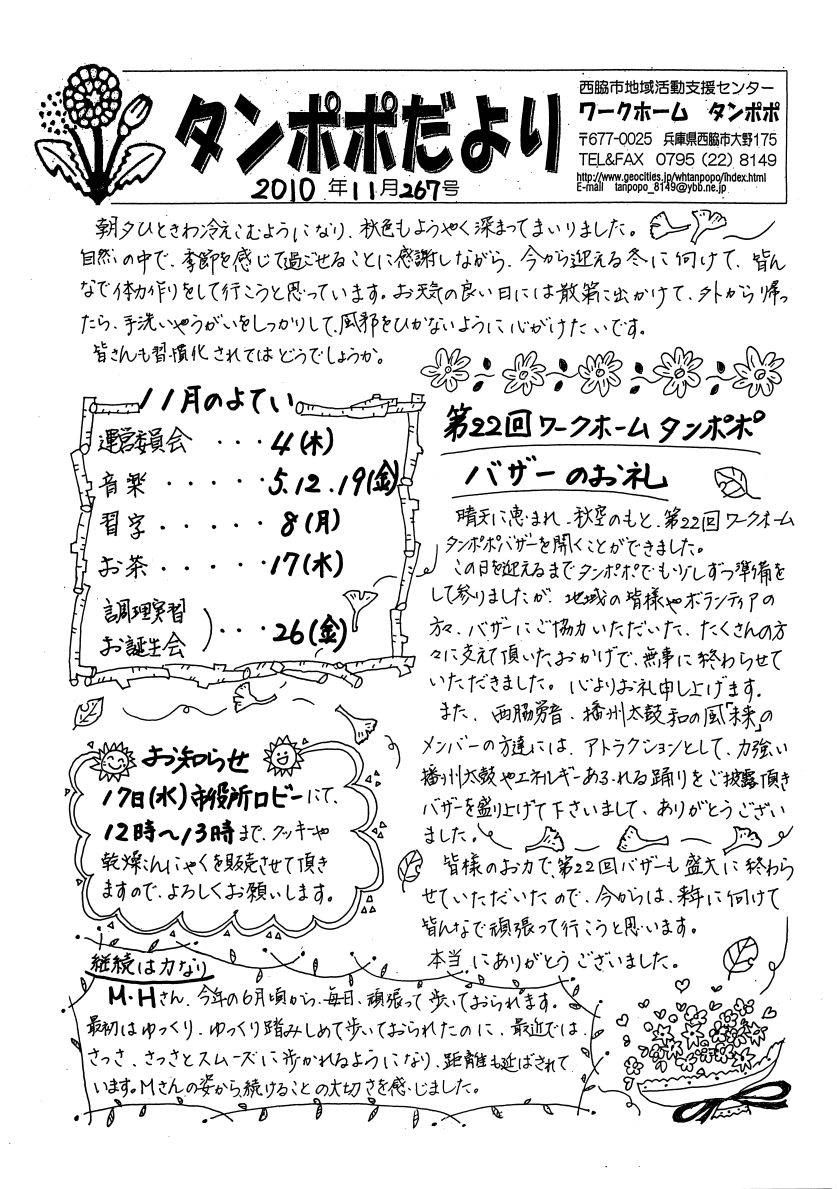 タンポポだより
2010年11月267号
西脇市地域活動支援センター
ワークホーム タンポポ
〒677-0025 兵庫県西脇市大野175
TEL&FAX 0795 (22) 8149
http://www.geocities.jp/whtanpopo/index.html
E-mail tanpopo_8149@ybb.ne.jp
朝夕ひときわ冷えこむようになり、秋色もようやく深まってまいりました。
自然の中で、季節を感じて過ごせることに感謝しながら、今から迎える冬に向けて、皆ん
なで体力作りをして行こうと思っています。お天気の良い日には散策に出かけて、外から帰っ
たら、手洗いやうがいをしっかりして、風邪をひかないように心がけたいです。
皆さんも習慣化されてはどうでしょうか。
11月のよてい
運営委員会 ・・・4(木)
音楽 ・・・・・5.12.19(金)
習字 ・・・・・8(月)
お茶 ・・・・・17(水)
調理実習
お誕生会 )・・・26(金)
お知らせ
17日(水)市役所ロビーにて、
12時〜13時まで、クッキーや
乾燥こんにゃくを販売させて頂き
ますので、よろしくお願いします。
第22回ワークホームタンポポ
バザーのお礼
晴天に恵まれ、秋空のもと、第22回ワークホーム
タンポポバザーを開くことができました。
この日を迎えるまでタンポポでも少しずつ準備を
して参りましたが、地域の皆様やボランティアの
方々、バザーにご協力いただいた、たくさんの方
々に支えて頂いたおかげで、無事に終わらせて
いただきました。心よりお礼申し上げます。
また、西脇労音、播州太鼓和の風「未来」の
メンバーの方達には、アトラクションとして、力強い
播州太鼓やエネルギーあふれる踊りをご披露頂き
バザーを盛り上げて下さいまして、ありがとうござい
ました。
皆様のお力で、第22回バザーも盛大に終わら
せていただいたので、今からは、来年に向けて
皆んなで頑張って行こうと思います。
本当にありがとうございました。
継続は力なり
M・Hさん、今年の6月頃から、毎日、頑張って歩いておられます。
最初はゆっくり、ゆっくり踏みしめて歩いておられたのに、最近では、
さっさ、さっさとスムーズに歩かれるようになり、距離も延ばされて
います。Mさんの姿から、続けることの大切さを感じました。